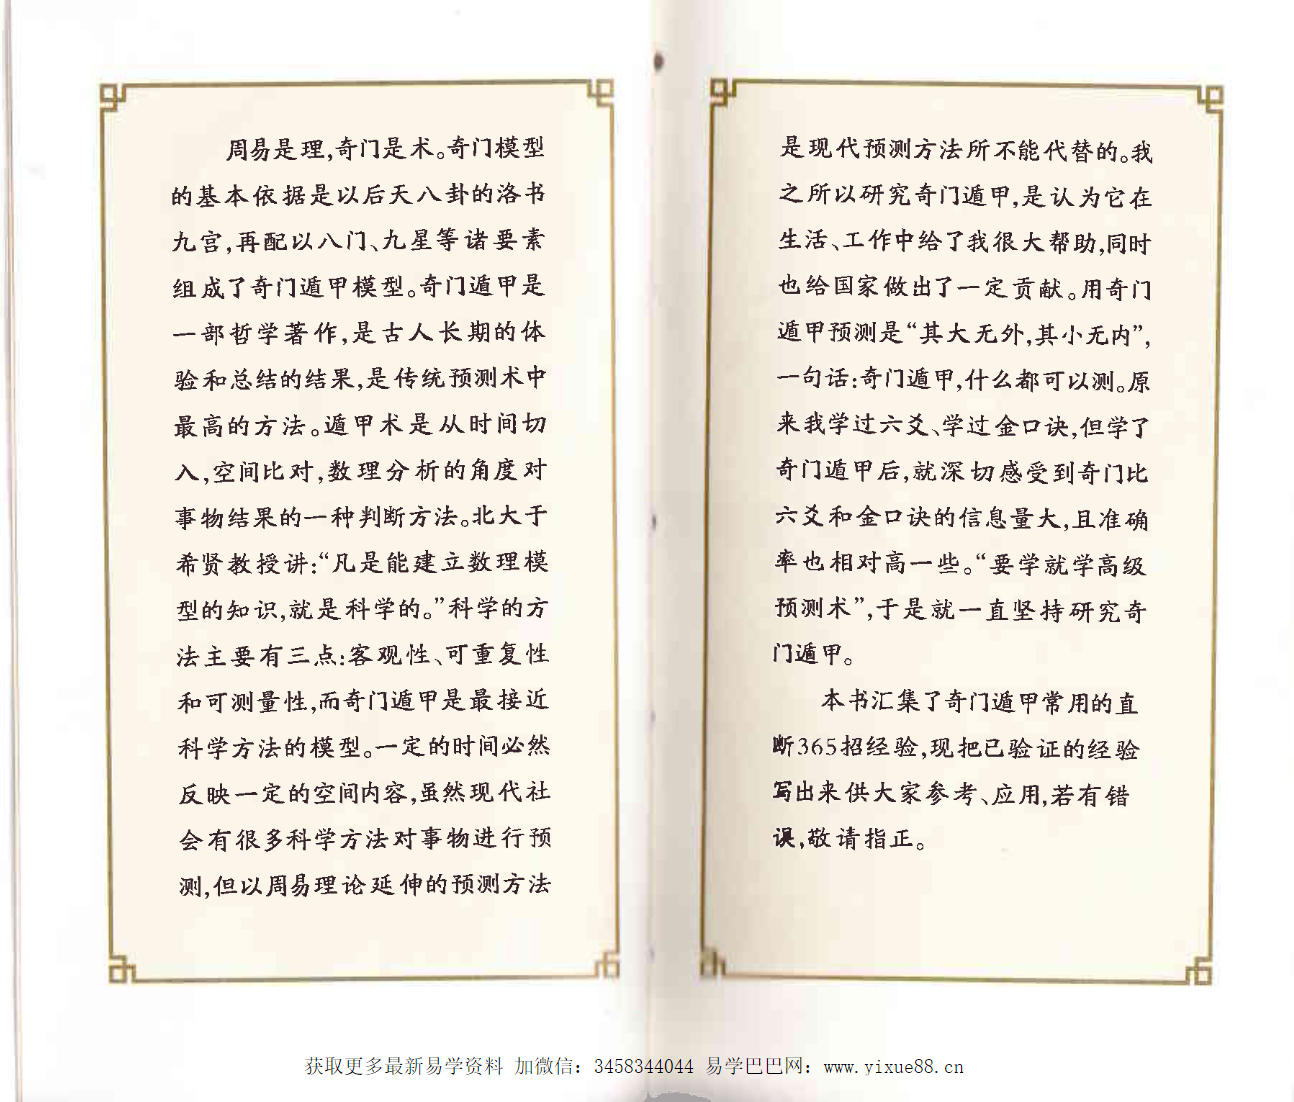 周易是理,奇门是术。奇门模型
的基本依据是以后天八卦的洛书
九宫,再配以八门、九星等诸要素
组成了奇门遁甲模型。奇门遁甲是
一部哲学著作,是古人长期的体
验和总结的结果,是传统预测术中
最高的方法。遁甲术是从时间切
入,空间比对,数理分析的角度对
事物结果的一种判断方法。北大于
希贤教授讲:“凡是能建立数理模
型的知识,就是科学的。”科学的方
法主要有三点:客观性、可重复性
和可测量性,而奇门遁甲是最接近
科学方法的模型。一定的时间必然
反映一定的空间内容,虽然现代社
会有很多科学方法对事物进行预
测,但以周易理论延伸的预测方法
是现代预测方法所不能代替的。我
之所以研究奇门遁甲,是认为它在
生活、工作中给了我很大帮助,同时
也给国家做出了一定贡献。用奇门
遁甲预测是“其大无外,其小无内”,
一句话:奇门遁甲,什么都可以测。原
来我学过六爻、学过金口诀,但学了
奇门遁甲后,就深切感受到奇门比
六爻和金口诀的信息量大,且准确
率也相对高一些。“要学就学高级
预测术”,于是就一直坚持研究奇
门遁甲。
本书汇集了奇门遁甲常用的直
断365招经验,现把已验证的经验
写出来供大家参考、应用,若有错
误,敬请指正。
获取更多最新易学资料 加微信：3458344044 易学巴巴网：www.yixue88.cn